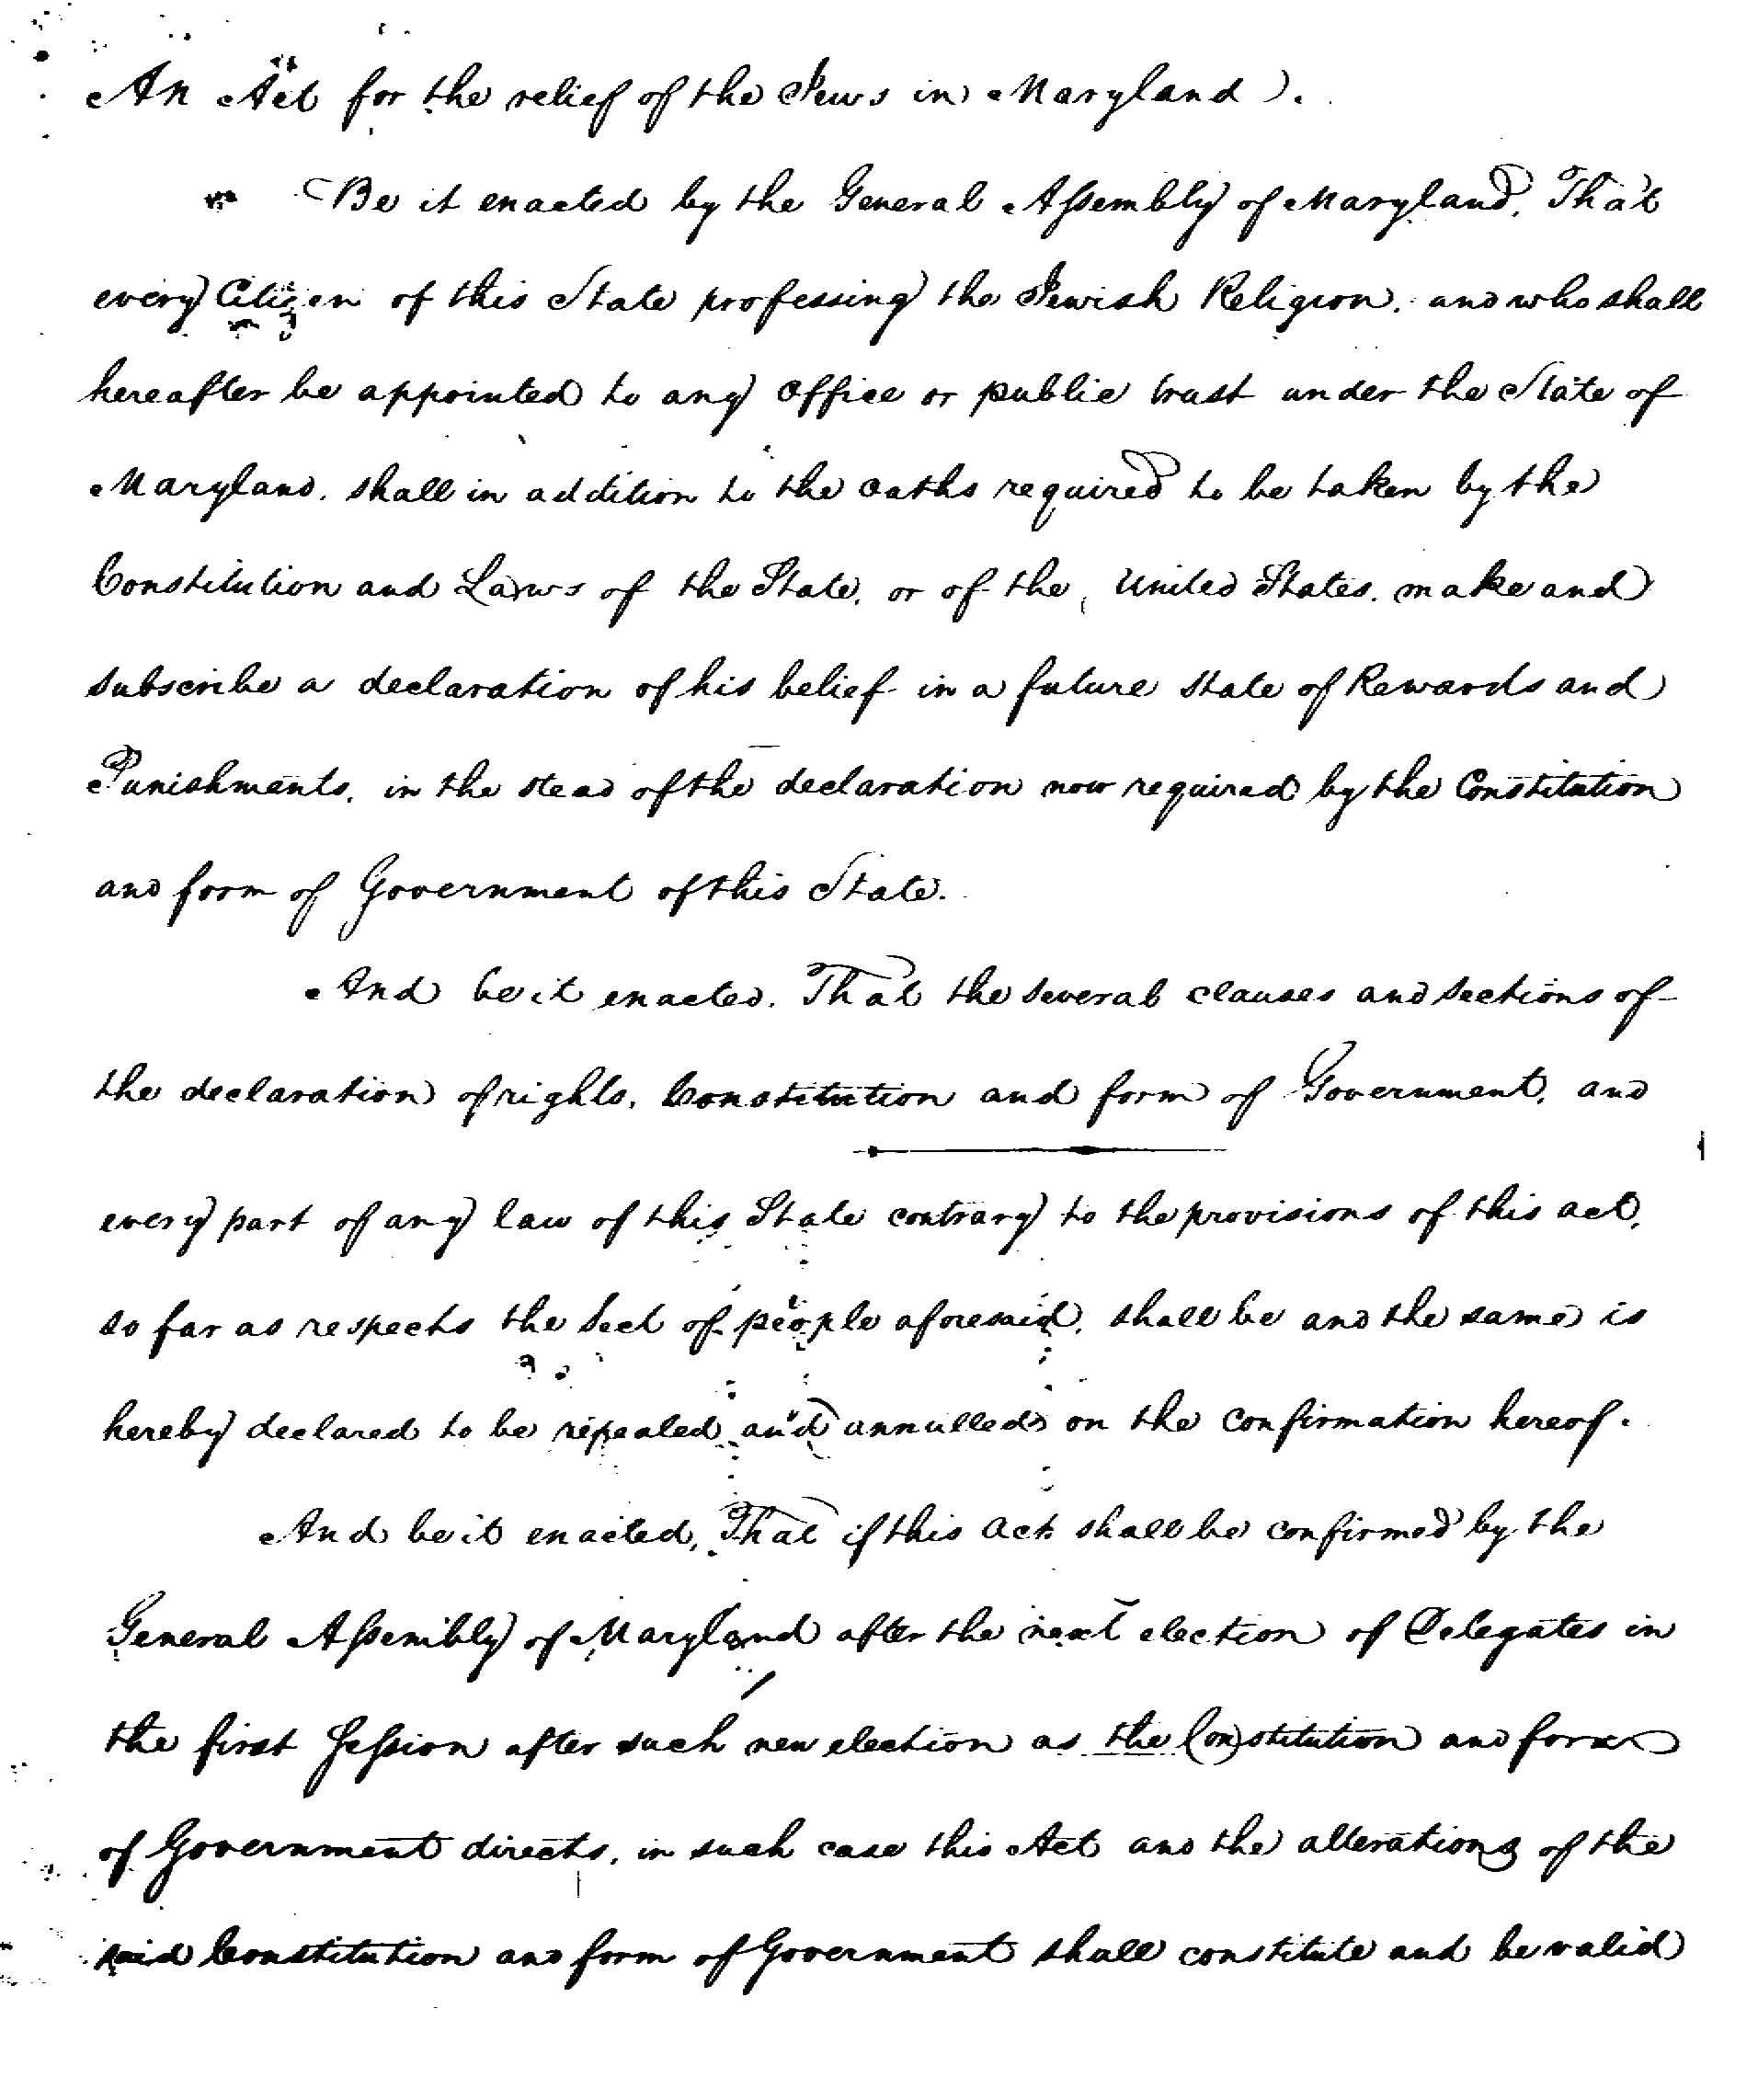 An Act for the relief of the Jews in Maryland.
Be it enacted by the General Assembly of Maryland, That
every Citizen of this State professing the Jewish Religion, and who shall
hereafter be appointed to any Office or public trust under the State of
Maryland, shall in addition to the oaths required to be taken by the
Constitution and Laws of the State, or of the United States, make and
subscribe a declaration of his belief in a future state of Rewards and
Punishments, in the stead of the declaration now required by the Constitution
and form of Government of this State.
And be it enacted, That the several clauses and sections of
the declaration of rights, Constitution and form of Government, and
every part of any law of this State contrary to the provisions of this act,
so far as respects the Sect of people aforesaid, shall be and the same is
hereby declared to be repealed and annulled on the confirmation hereof.
And be it enacted, That if this Act shall be confirmed by the
General Assembly of Maryland after the next election of Delegates in
the first Session after such new election as the Constitution and form
of Government directs, in such case this Act and the alterations of the
said Constitution and form of Government shall constitute and be valid